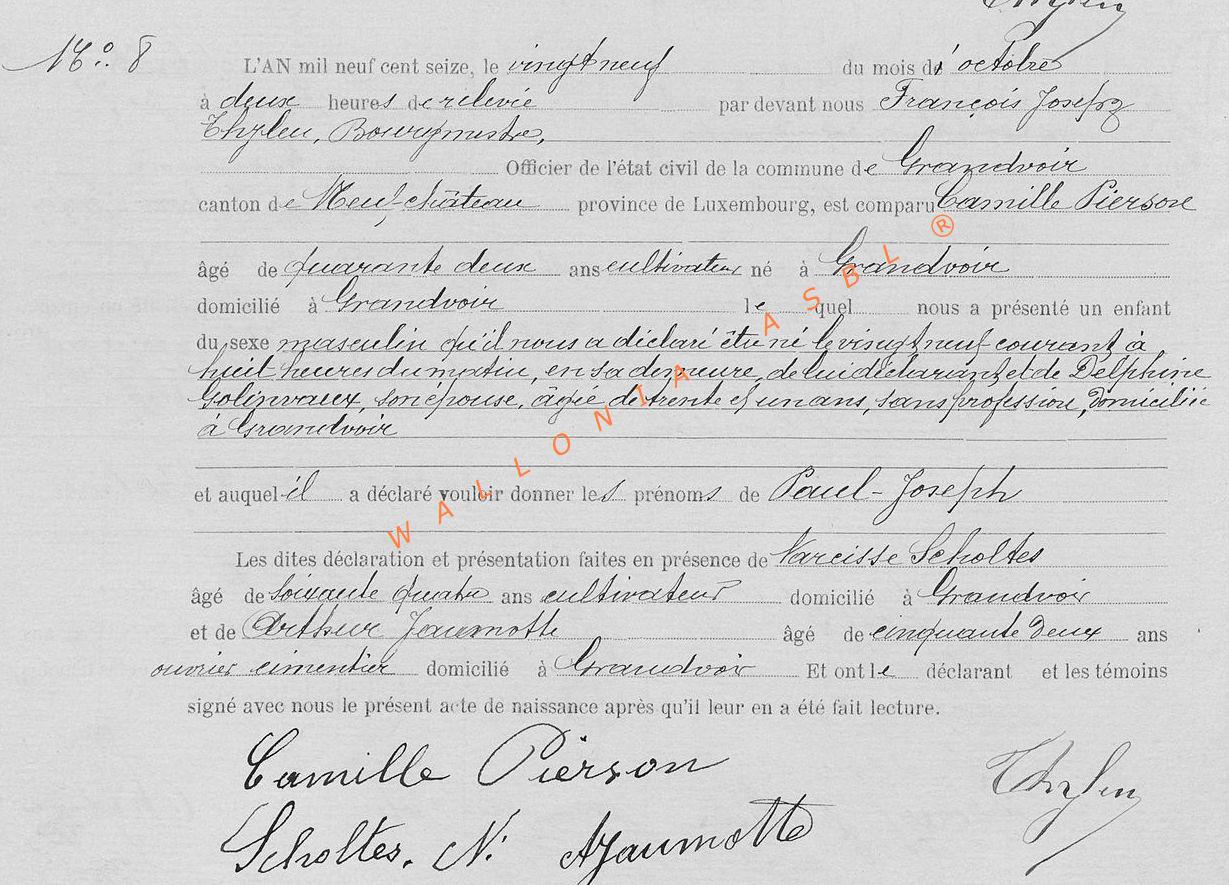 Thylen
N°. 8 L'AN mil neuf cent seize, le vingt neuf du mois de octobre
à deux heures de relevée par devant nous François Joseph
Thylen, Bourgmestre,
Officier de l'état civil de la commune de Grandvoir
canton de Neufchâteau province de Luxembourg, est comparu Camille Pierson
âgé de quarante deux ans cultivateur né à Grandvoir
domicilié à Grandvoir le quel nous a présenté un enfant
du sexe masculin qu'il nous a déclaré être né le vingt neuf courant à
huit heures du matin, en sa demeure, de lui déclarant et de Delphine
Golinvaux, son épouse, âgée de trente et un ans, sans profession, domiciliée
à Grandvoir
et auquel il a déclaré vouloir donner les prénoms de Paul-Joseph
Les dites déclaration et présentation faites en présence de Narcisse Scholtes
âgé de soixante quatre ans cultivateur domicilié à Grandvoir
et de Arthur Jaumotte âgé de cinquante deux ans
ouvrier cimentier domicilié à Grandvoir Et ont le déclarant et les témoins
signé avec nous le présent acte de naissance après qu'il leur en a été fait lecture.
Camille Pierson Thylen
Scholtes. N. AJaumotte
WALLONIA ASBL ®